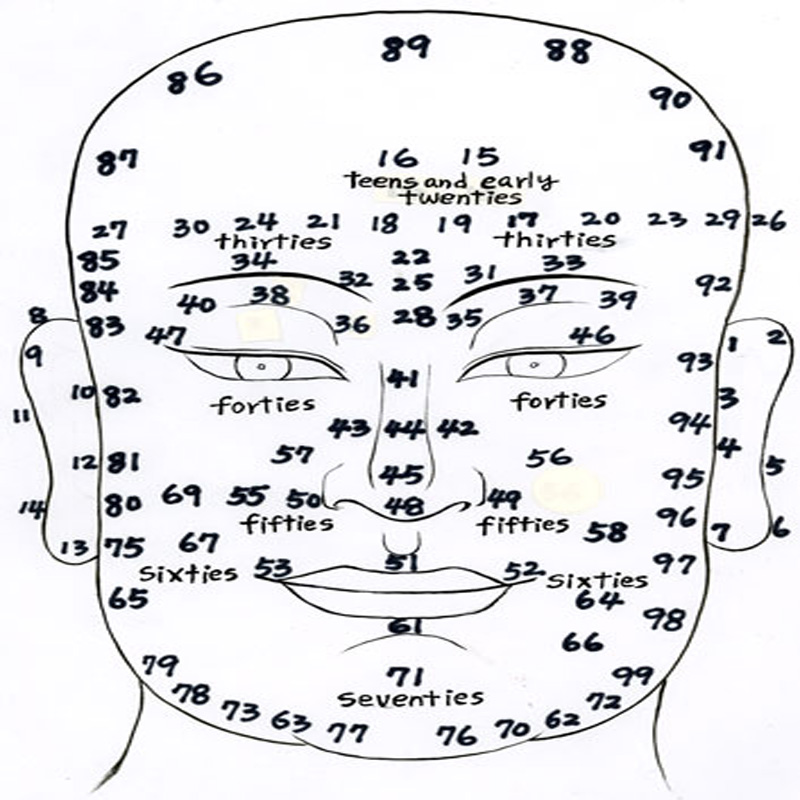 89 88
86
90
87 16 15 91
teens and early
twenties
27 30 24 21 18 19 17 20 23 29 26
thirties thirties
85 34 22 33
84 32 25 31 92
40 38 37 39
8 83 36 28 35
47 46 1 2
9 93
41
10 82 forties forties 3
11 43 44 42 94
57 56 4
12 81 45 95 5
69 55 50 48 49
14 80 96
fifties fifties 58 7 6
13 75 67
51 97
sixties 53 52 sixties
65 64
61 98
66
79 71 99
78 seventies 72
73 63 77 76 70 62